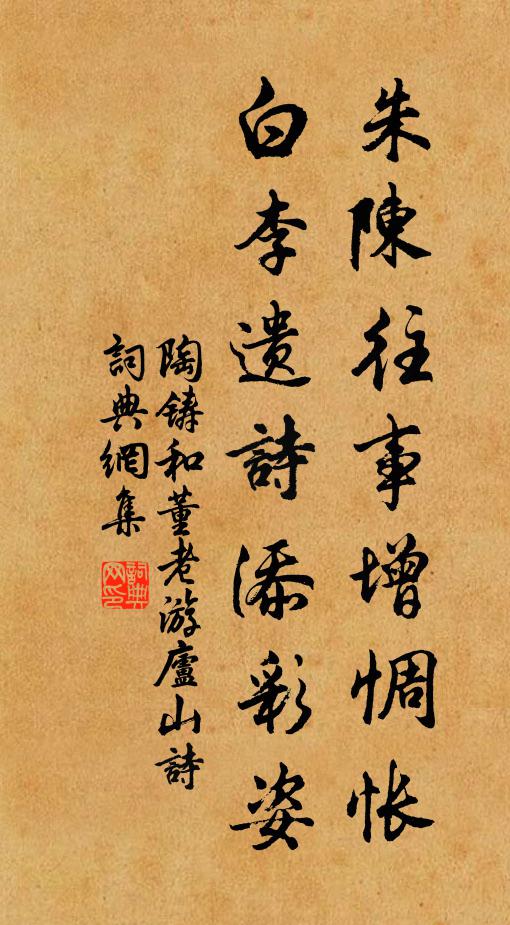 朱陳往事增惆怅
白李遗詩添彩姿
陶鑄和董老游廬山詩
詞典網集
詞典网印